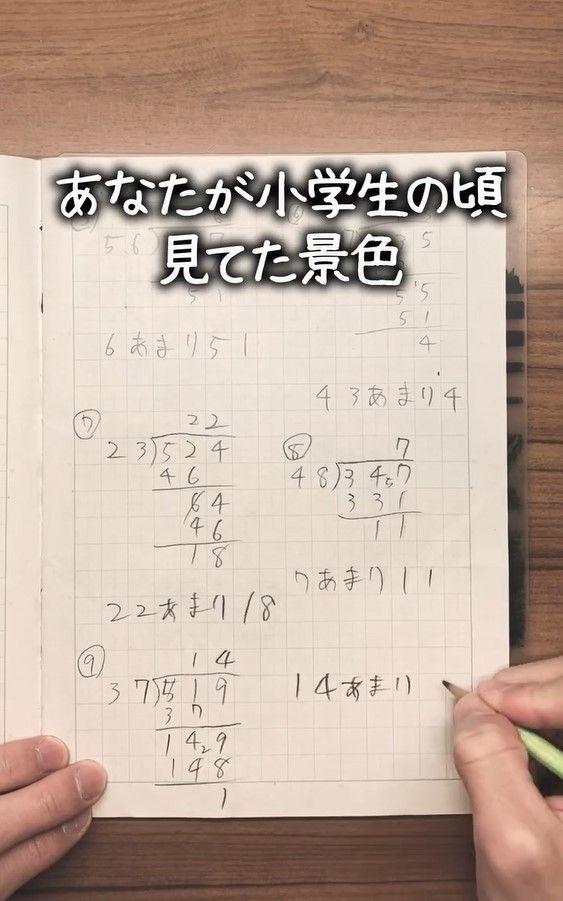 あなたが小学生の頃
見てた景色
56
51
6あまり51
35
55
51
4
43あまり4
⑦
22
23)524
46
64
46
18
22あまり18
⑧
7
48)347
331
11
7あまり11
⑨
14
37)519
37
149
148
1
14あまり